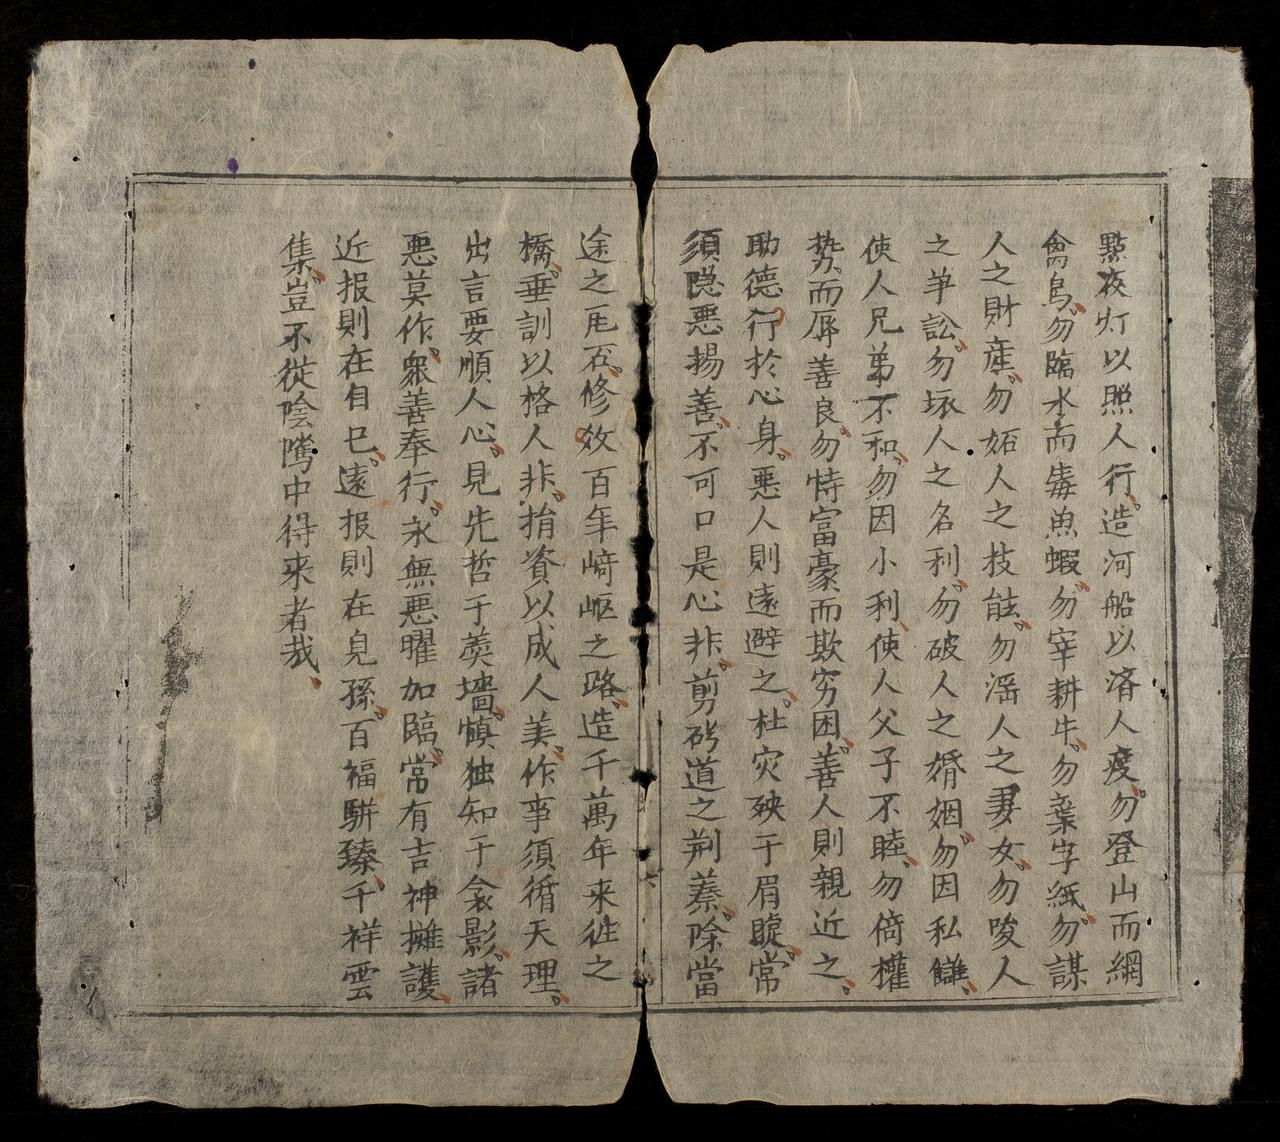 點夜灯以照人行造河船以済人度勿登山而網
禽鳥勿臨水而毒魚蝦勿宰耕牛勿棄字紙勿謀
人之財産勿妬人之技能勿滛人之妻女勿唆人
之争訟勿壊人之名利勿破人之婚姻勿因私讎
使人兄弟不和勿因小利使人父子不睦勿倚權
势而辱善良勿恃富豪而欺穷困善人則親近之
助德行於心身悪人則遠避之杜灾殃于眉睫常
須隠悪揚善不可口是心非剪碍道之荆蓁除當
途之瓦石修效百年﨑岖之路造千萬年来徃之
橋垂訓以格人非捐資以成人美作事須循天理
出言要順人心見先哲于羹墻慎独知于衾影諸
悪莫作衆善奉行永無悪曜加臨常有吉神擁護
近报則在自己遠报則在皃孫百福駢臻千祥雲
集豈不從陰隲中得来者哉
六